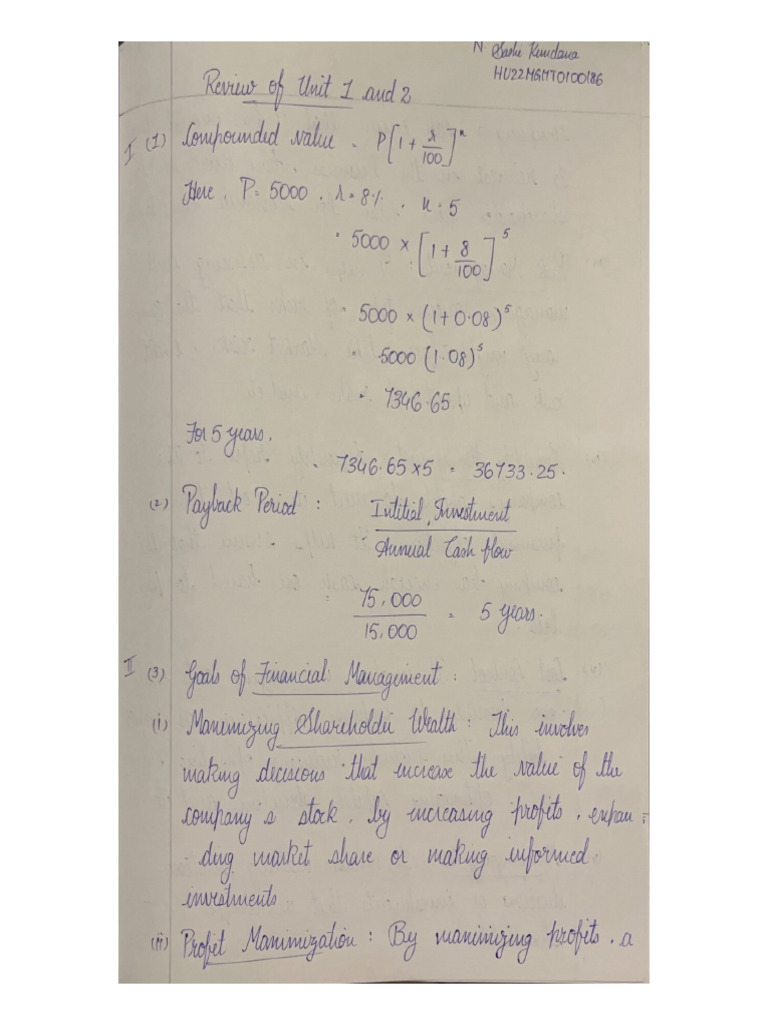 N. Sashi Kundana
HU22MGMT0100186
Review of Unit 1 and 2
I (1) Compounded Value = P[1 + r/100]^n
Here, P = 5000, r = 8%, n = 5
= 5000 × [1 + 8/100]^5
= 5000 × (1 + 0.08)^5
= 5000 (1.08)^5
= 7346.65.
For 5 years,
= 7346.65 × 5 = 36733.25.
(2) Payback Period : Intitial Investment / Annual Cash flow
= 75,000 / 15,000 = 5 years.
II (3) Goals of Financial Management :
(i) Maximizing Shareholder Wealth : This involves
making decisions that increase the value of the
company's stock, by increasing profits, expan -
ding market share or making informed
investments
(ii) Profit Maximization : By maximizing profits, a